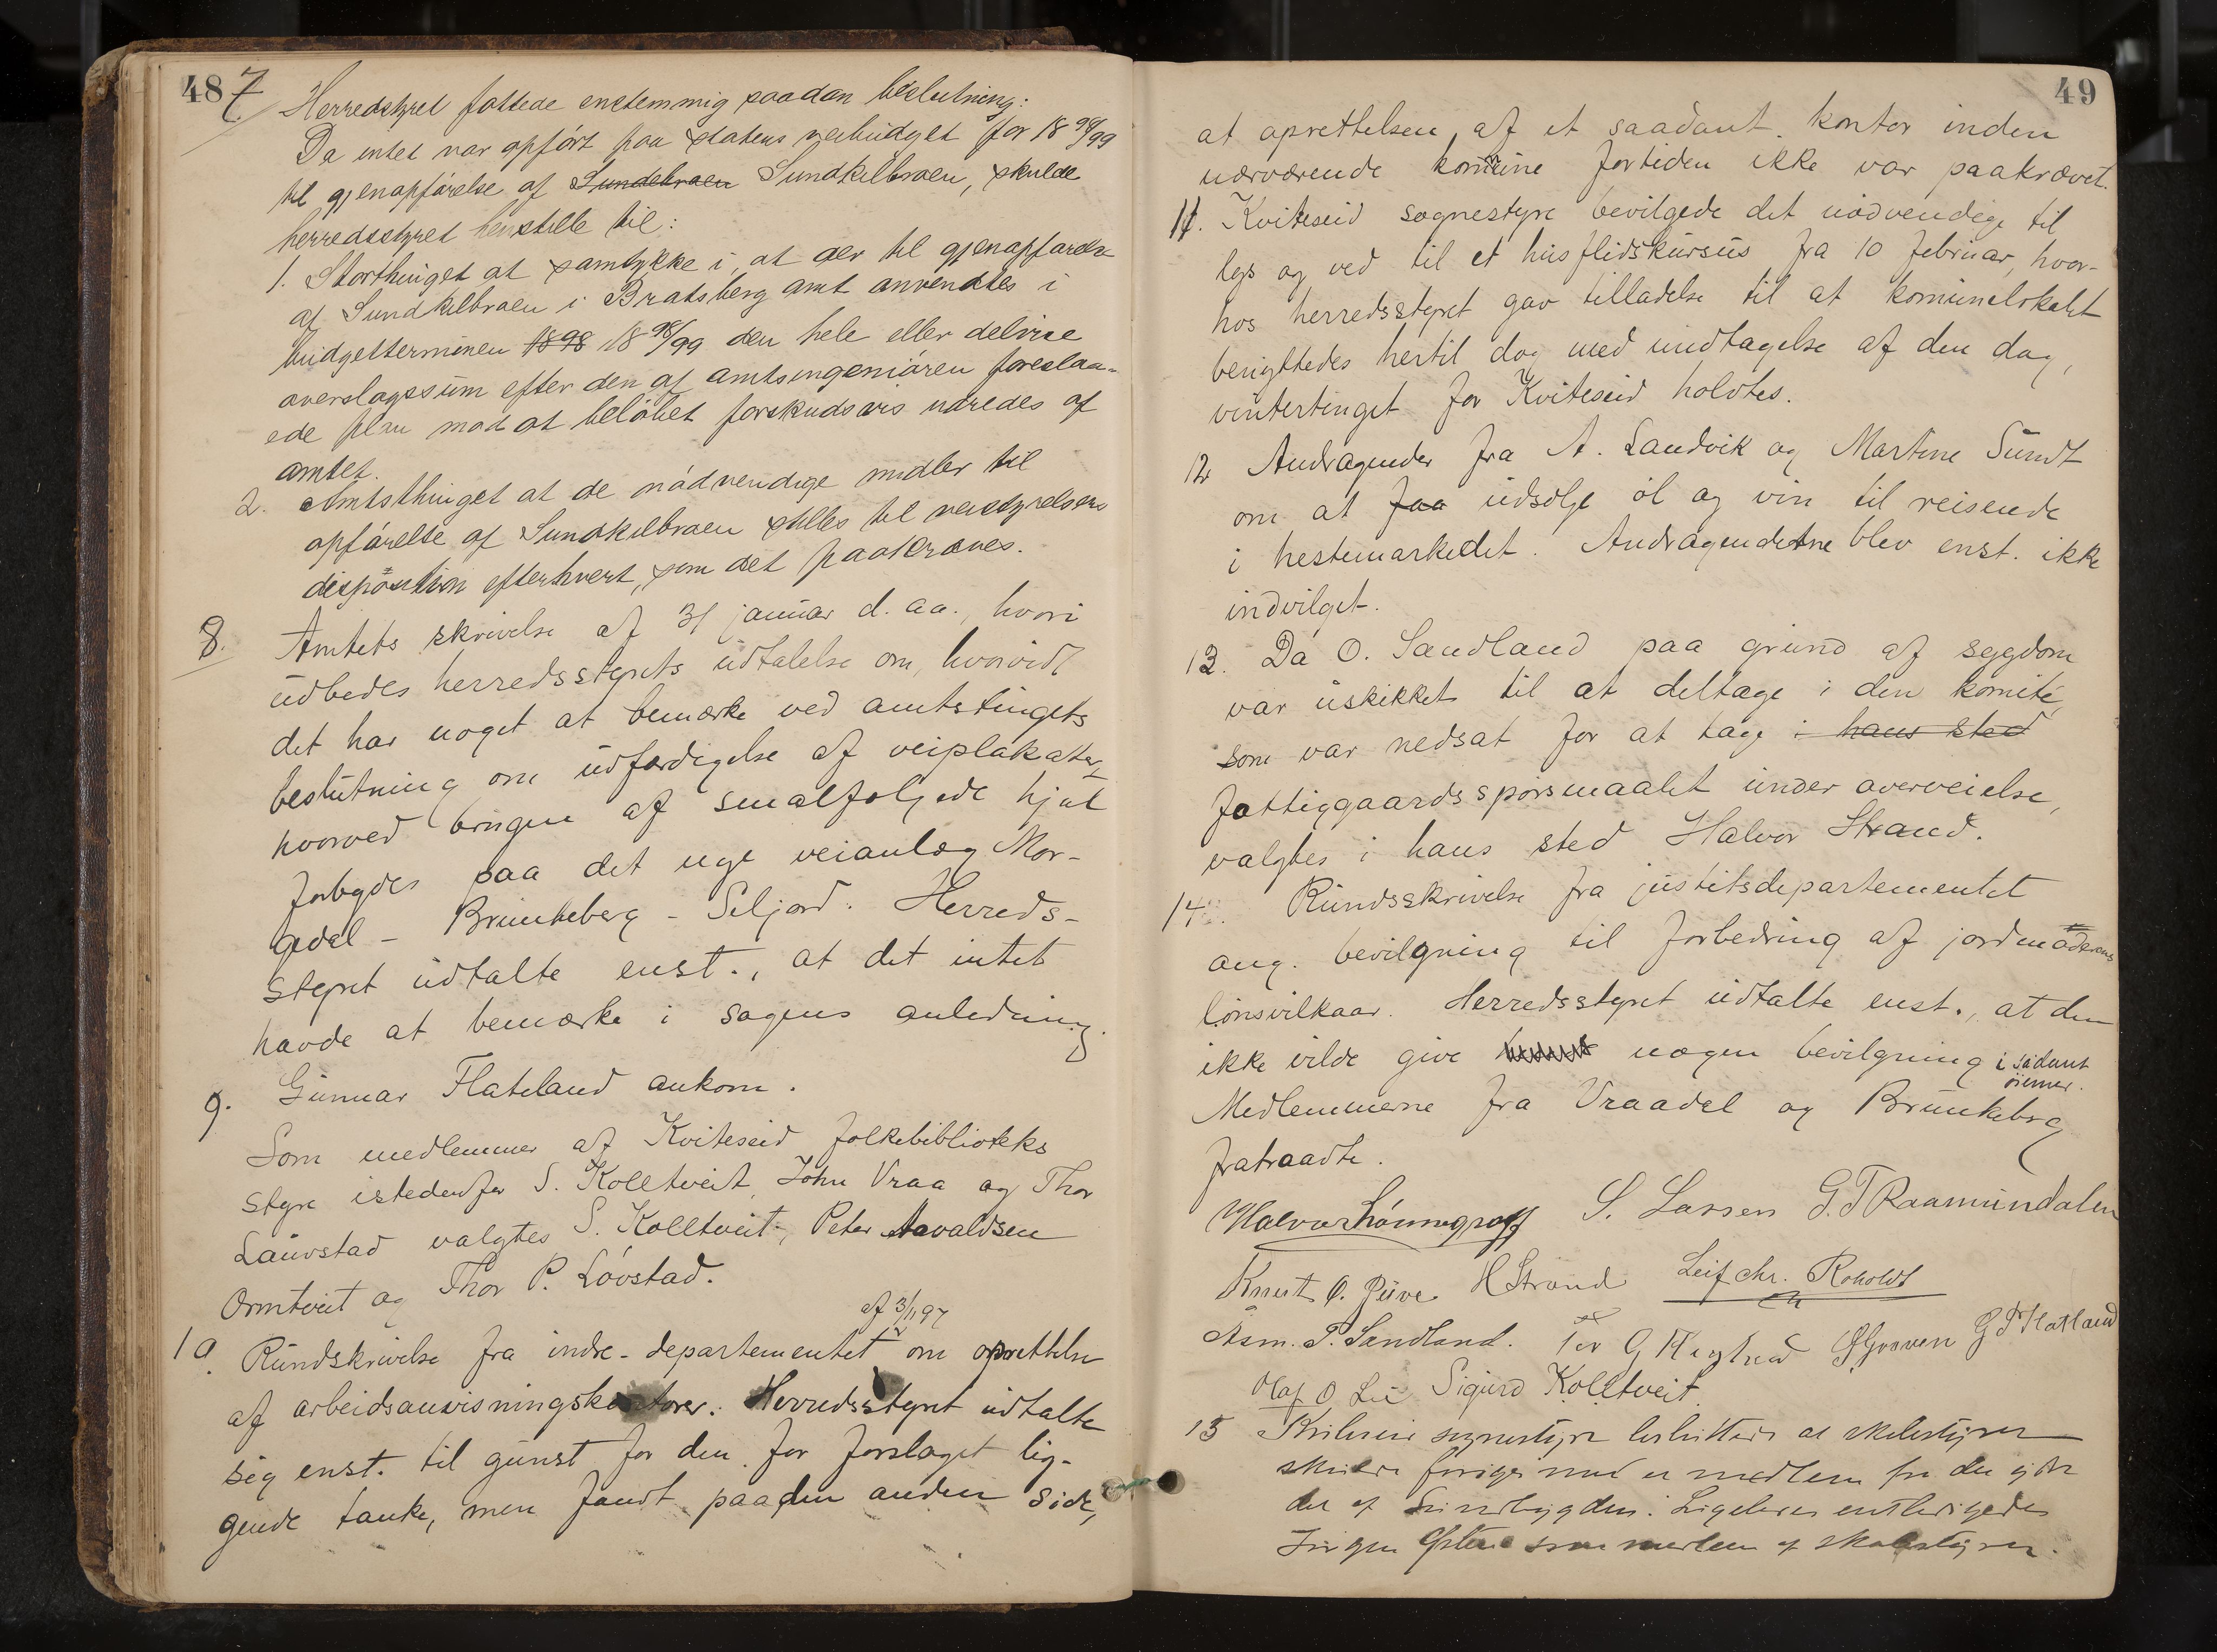 48
7. Herredstyret fattede enstemmig saadan beslutning:
Da intet var opført paa statens veibudget for 18 98/99
til gjenopførelse af Sundebraen Sundkilbraen, skulde
herredsstyret henstille til:
1. Storthinget at samtykke i, at der til gjenopførelse
af Sundkilbraen i Bratsberg amt anvendtes i
budgetterminen 1898 18 98/99 den hele eller delvise
overslagssum efter den af amtsingeniøren foreslaa-
ede plan mod at beløbet forskudsvis udredes af
amtet.
2. Amtsthinget at de nødvendige midler til
opførelse af Sundkilbraen stilles til veistyrelsens
disposition efterhvert, som det paakræves.
8. Amtets skrivelse af 31 januar d. aa., hvori
udbedes herredsstyrets udtalelse om, hvorvidt
det har noget at bemærke ved amtstingets
beslutning om udfærdigelse af veiplakater,
hvorved brugen af smalfælgede hjul
forbydes paa det nye veianlæg Mor-
gedal - Brunkeberg - Seljord. Herreds-
styret udtalte enst., at det intet
havde at bemærke i sagens anledning.
Gunnar Flateland ankom.
9. Som medlemmer af Kviteseid folkebiblioteks
styre istedenfor S. Kolltveit, John Vraa og Thor
Lauvstad valgtes S. Kolltveit, Peter Aavaldsen
Ormtveit og Thor P. Løvstad.
af 3/11 97
10. Rundskrivelse fra indre-departementet om oprettelse
af arbeidsanvisningskontorer. Herredsstyret udtalte
sig enst. til gunst for den for forslaget lig-
gende tanke, men fandt paa den anden side,
49
at oprettelsen af et saadant kontor inden
nærværende komune fortiden ikke var paakrævet.
11. Kviteseid sognestyre bevilgede det nødvendige til
lys og ved til et husflidskursus fra 10 februar, hvor-
hos herredsstyret gav tilladelse til at komunelokalet
benyttedes hertil dog med undtagelse af den dag,
vintertinget for Kviteseid holdtes.
12 Andragender fra A. Landvik og Martine Sundt
om at faa udsælge øl og vin til reisende
i hestemarkedet. Andragenderne blev enst. ikke
indvilget.
13. Da O. Sandland paa grund af sygdom
var uskikket til at deltage i den komité,
som var nedsat for at tage i hans sted
fattiggaardsspørsmaalet under overveielse,
valgtes i hans sted Halvor Strand.
14. Rundsskrivelse fra justitsdepartementet
ang. bevilgning til forbedring af jordmødrenes
lønsvilkaar. Herredsstyret udtalte enst., at den
ikke vilde give nogen bevilgning i sådant
øiemed.
Medlemmerne fra Vraadal og Brunkeberg
fratraadte.
Halvor Lønnegraff S. Lassen G. T Raamundalen
Knut O. Rui H Strand Leif chr. Roholdt
Asm. P. Sandland. Tor G Ø Groven G T Flatland
Olaf O Lie Sigurd Kolltveit
15 Kviteseid sognestyre besluttede at skolestyret
skulde forøges med et medlem fra den ytre
del af Sundbygden. Ligeledes entledigedes
som medlem af skolestyret.